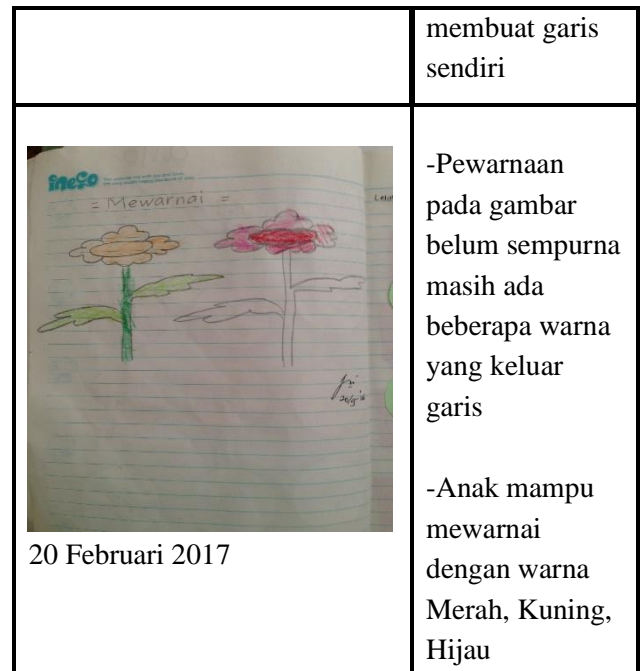 membuat garis
sendiri
ineco
= Mewarnai =
20 Februari 2017
-Pewarnaan
pada gambar
belum sempurna
masih ada
beberapa warna
yang keluar
garis
-Anak mampu
mewarnai
dengan warna
Merah, Kuning,
Hijau